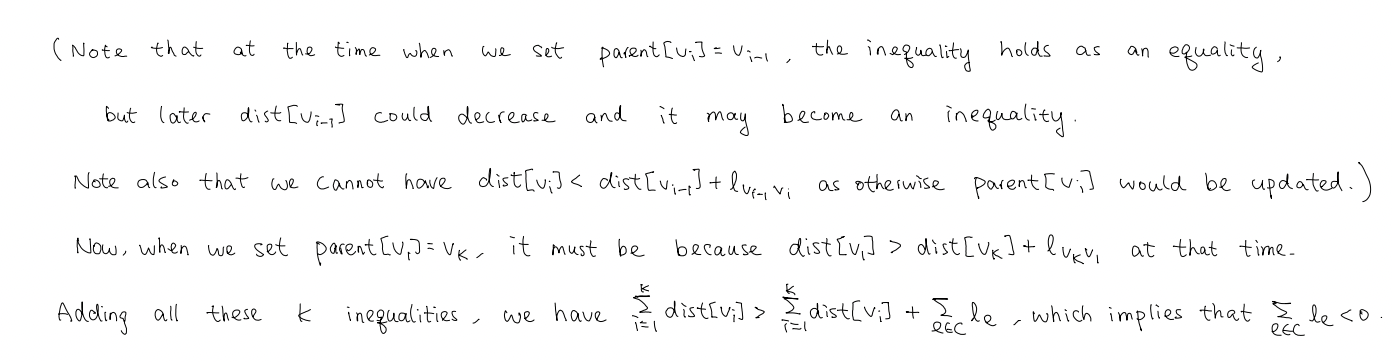 (Note that at the time when we set parent[vᵢ] = vᵢ₋₁, the inequality holds as an equality,
but later dist[vᵢ₋₁] could decrease and it may become an inequality.
Note also that we cannot have dist[vᵢ] < dist[vᵢ₋₁] + l_{vᵢ₋₁vᵢ} as otherwise parent[vᵢ] would be updated.)
Now, when we set parent[v₁] = vₖ, it must be because dist[v₁] > dist[vₖ] + l_{vₖv₁} at that time.
Adding all these k inequalities, we have ∑_{i=1}^{k} dist[vᵢ] > ∑_{i=1}^{k} dist[vᵢ] + ∑_{e∈C} lₑ, which implies that ∑_{e∈C} lₑ < 0.